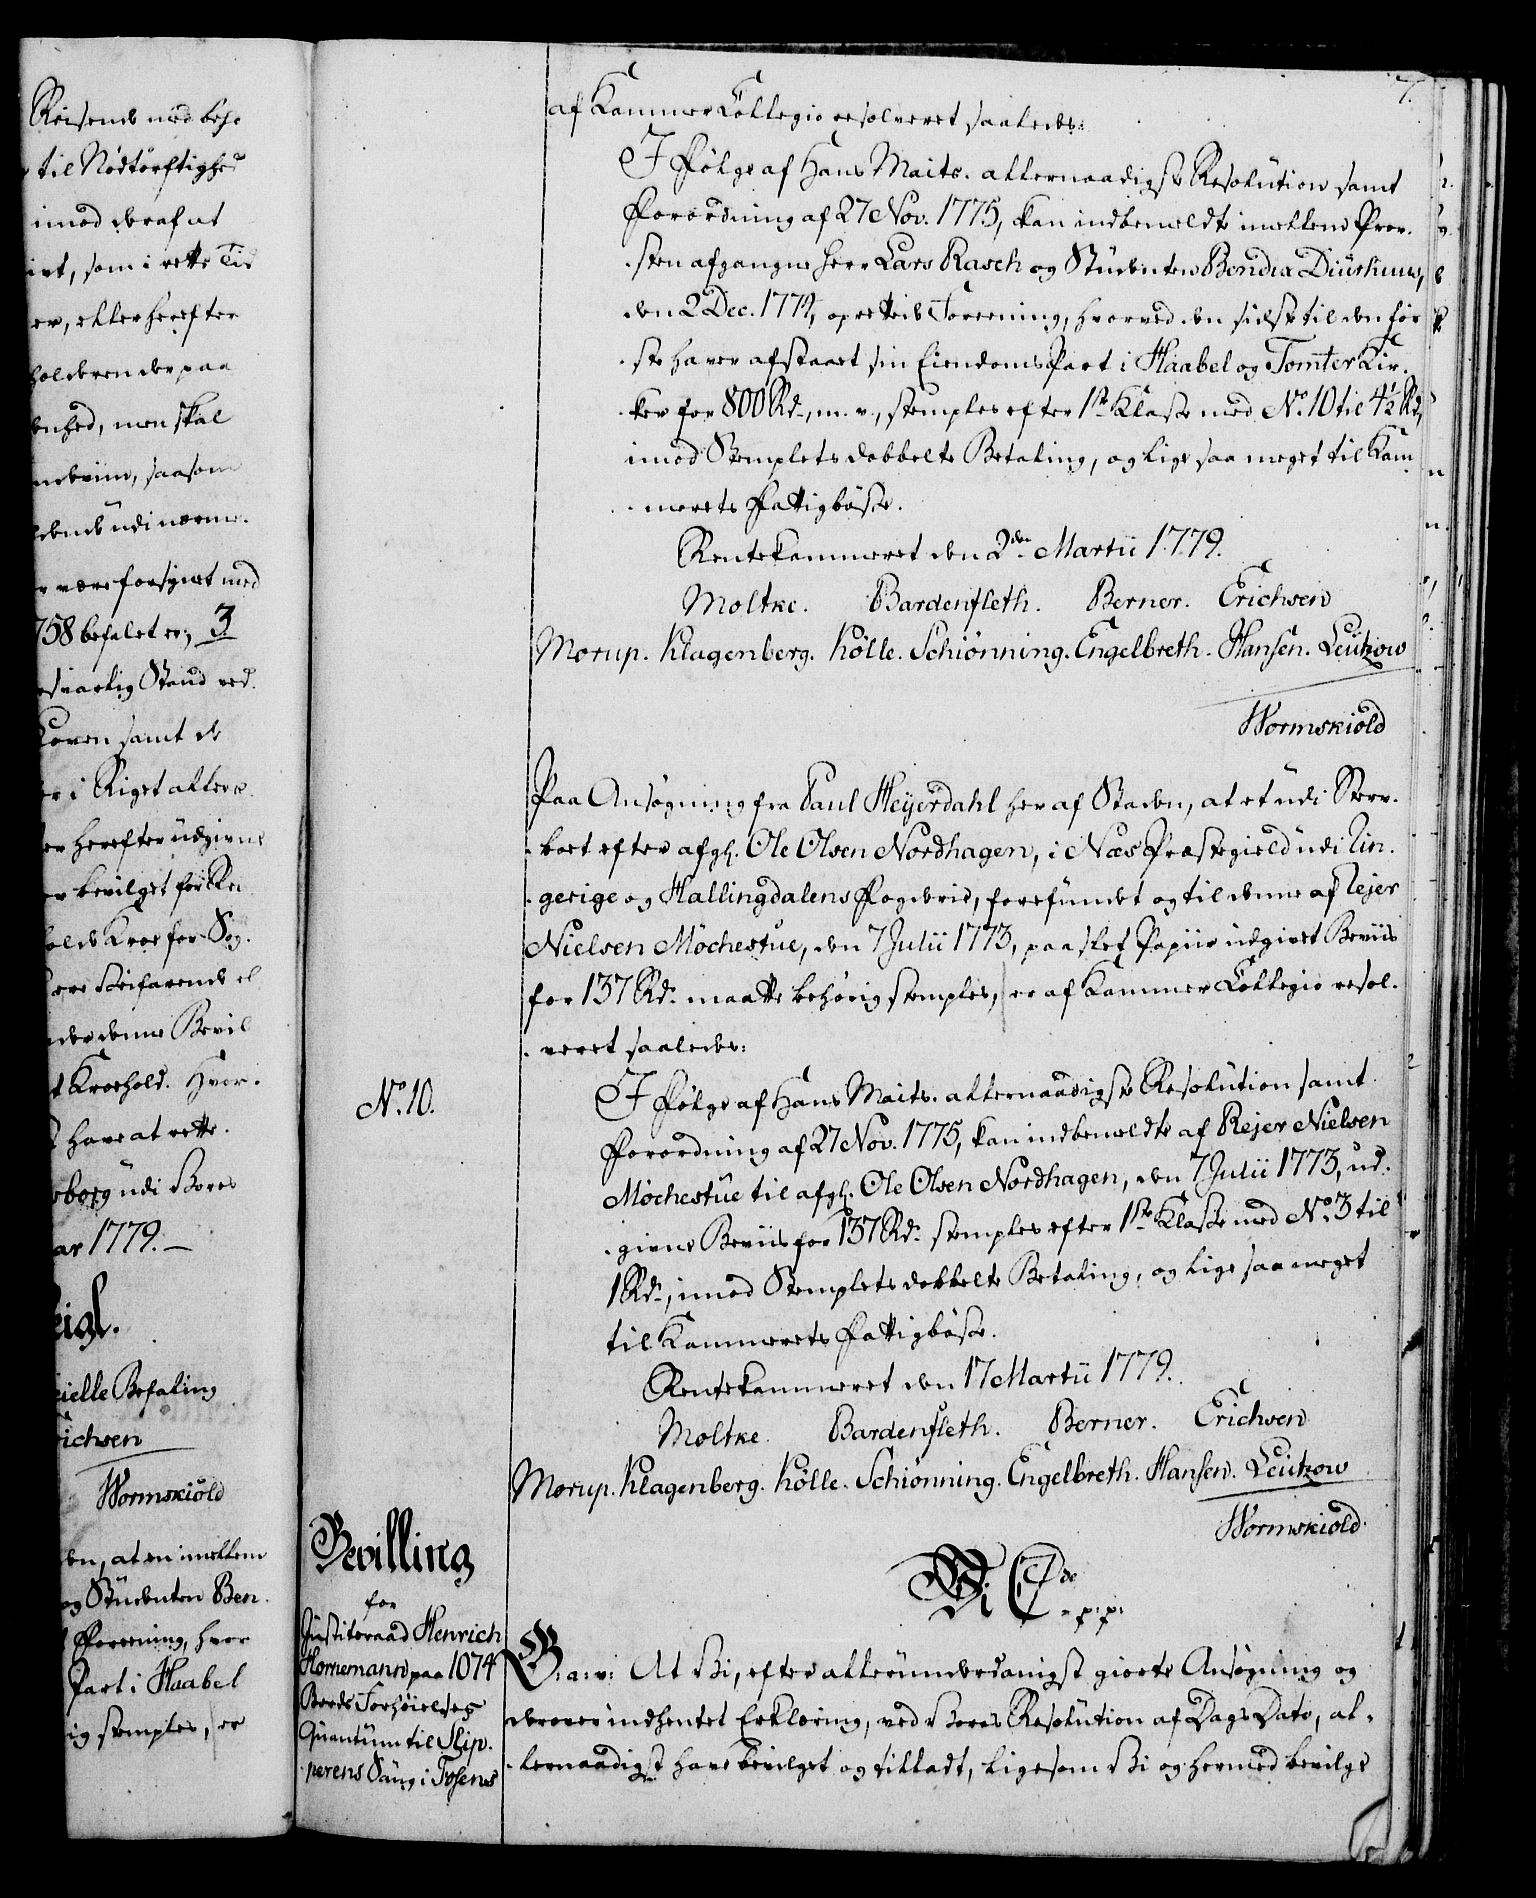 Reisende med beho
til Nødtørftighed
imod deraf at
ivt, som i rette Tid
er, eller herefter
holderen der paa
benhed, men skal
udi neerme.
være forsynet med
758 befalet er, 3
svarlig Stand ved.
Loven samt de
i Riget aller
herefter udgivne
bevilget for Rei
olde Kroe for Sog.
ere Veifarende el
der denne Bevil
t Kroehold. Hvor.
have at rette.
sborg udi Vores
ar 1779. —
eigl.
ielle Befaling
richsen
Wormskiold
den, at en imellem
og Studenten Ben.
Foreening, hvor
Part i Haabel
ig stemples, er
7.
af Kammer Collegio resolveret saaledes:
I Følge af Hans Maits. allernaadigste Resolution samt
Forordning af 27 Nov. 1775, kan indbemeldte imellem Prov.
sten afgangne Herr Lars Rasch og Studenten Bendix Diürhuus,
den 2 Dec. 1774, oprettede Foreening, hvorved den sidste til den før
ste haver afstaaet sin Eiendoms Part i Haabel og Tomter Kir.
ker for 800 Rd., m. v., stemples efter 1ste Klasse med No. 10 til 4½ Rd,
imod Stemplets dobbelte Betaling, og lige saa meget til Kam
merets Fattigbøsse.
Rentekammeret den 2den Martii 1779.
Moltke. Bardenfleth. Berner. Erichsen
Morup. Klagenberg. Kölle. Schiönning. Engelbreth. Hansen. Leützow
Wormskiold
Paa Ansøgning fra Paul Heyerdahl her af Staden, at et udi Sterv.
boet efter afgl. Ole Olsen Nordhagen, i Næs Præstegield udi Rin.
gerige og Hallingdalens Fogderie, forefundet og til denne af Rejer
Nielsen Möchestue, den 7 Julii 1773, paa slet Papiir udgivet Beviis
for 137 Rd. maatte behørig stemples, er af Kammer Collegio resol.
veret saaledes:
No. 10.
I Følge af Hans Maits. allernaadigste Resolution samt
Forordning af 27 Nov. 1775, kan indbemeldte af Rejer Nielsen
Möchestüe til afgl. Ole Olsen Nordhagen, den 7 Julii 1773, ud.
givne Beviis for 137 Rd. stemples efter 1ste Klasse med No. 3 til
1 Rd., imod Stemplets dobbelte Betaling, og lige saa meget
til Kammerets Fattigbøsse.
Rentekammeret den 17 Martii 1779.
Moltke. Bardenfleth. Berner. Erichsen
Morup. Klagenberg. Kölle. Schiönning. Engelbreth. Hansen. Leützow
Wormskiold
Bevilling
for
Justitsraad Henrich
Hornemann paa 1074
Bords Forhøielses
Quantum til Skip.
perens Saug i Fosens
Vi C 7de p: p:
G: a: v: At Vi, efter allerunderdanigst giorte Ansøgning og
derover indhentet Erklæring, ved Vores Resolution af Dags Dato, al.
lernaadigst have bevilget og tilladt, ligesom Vi og hermed bevilge